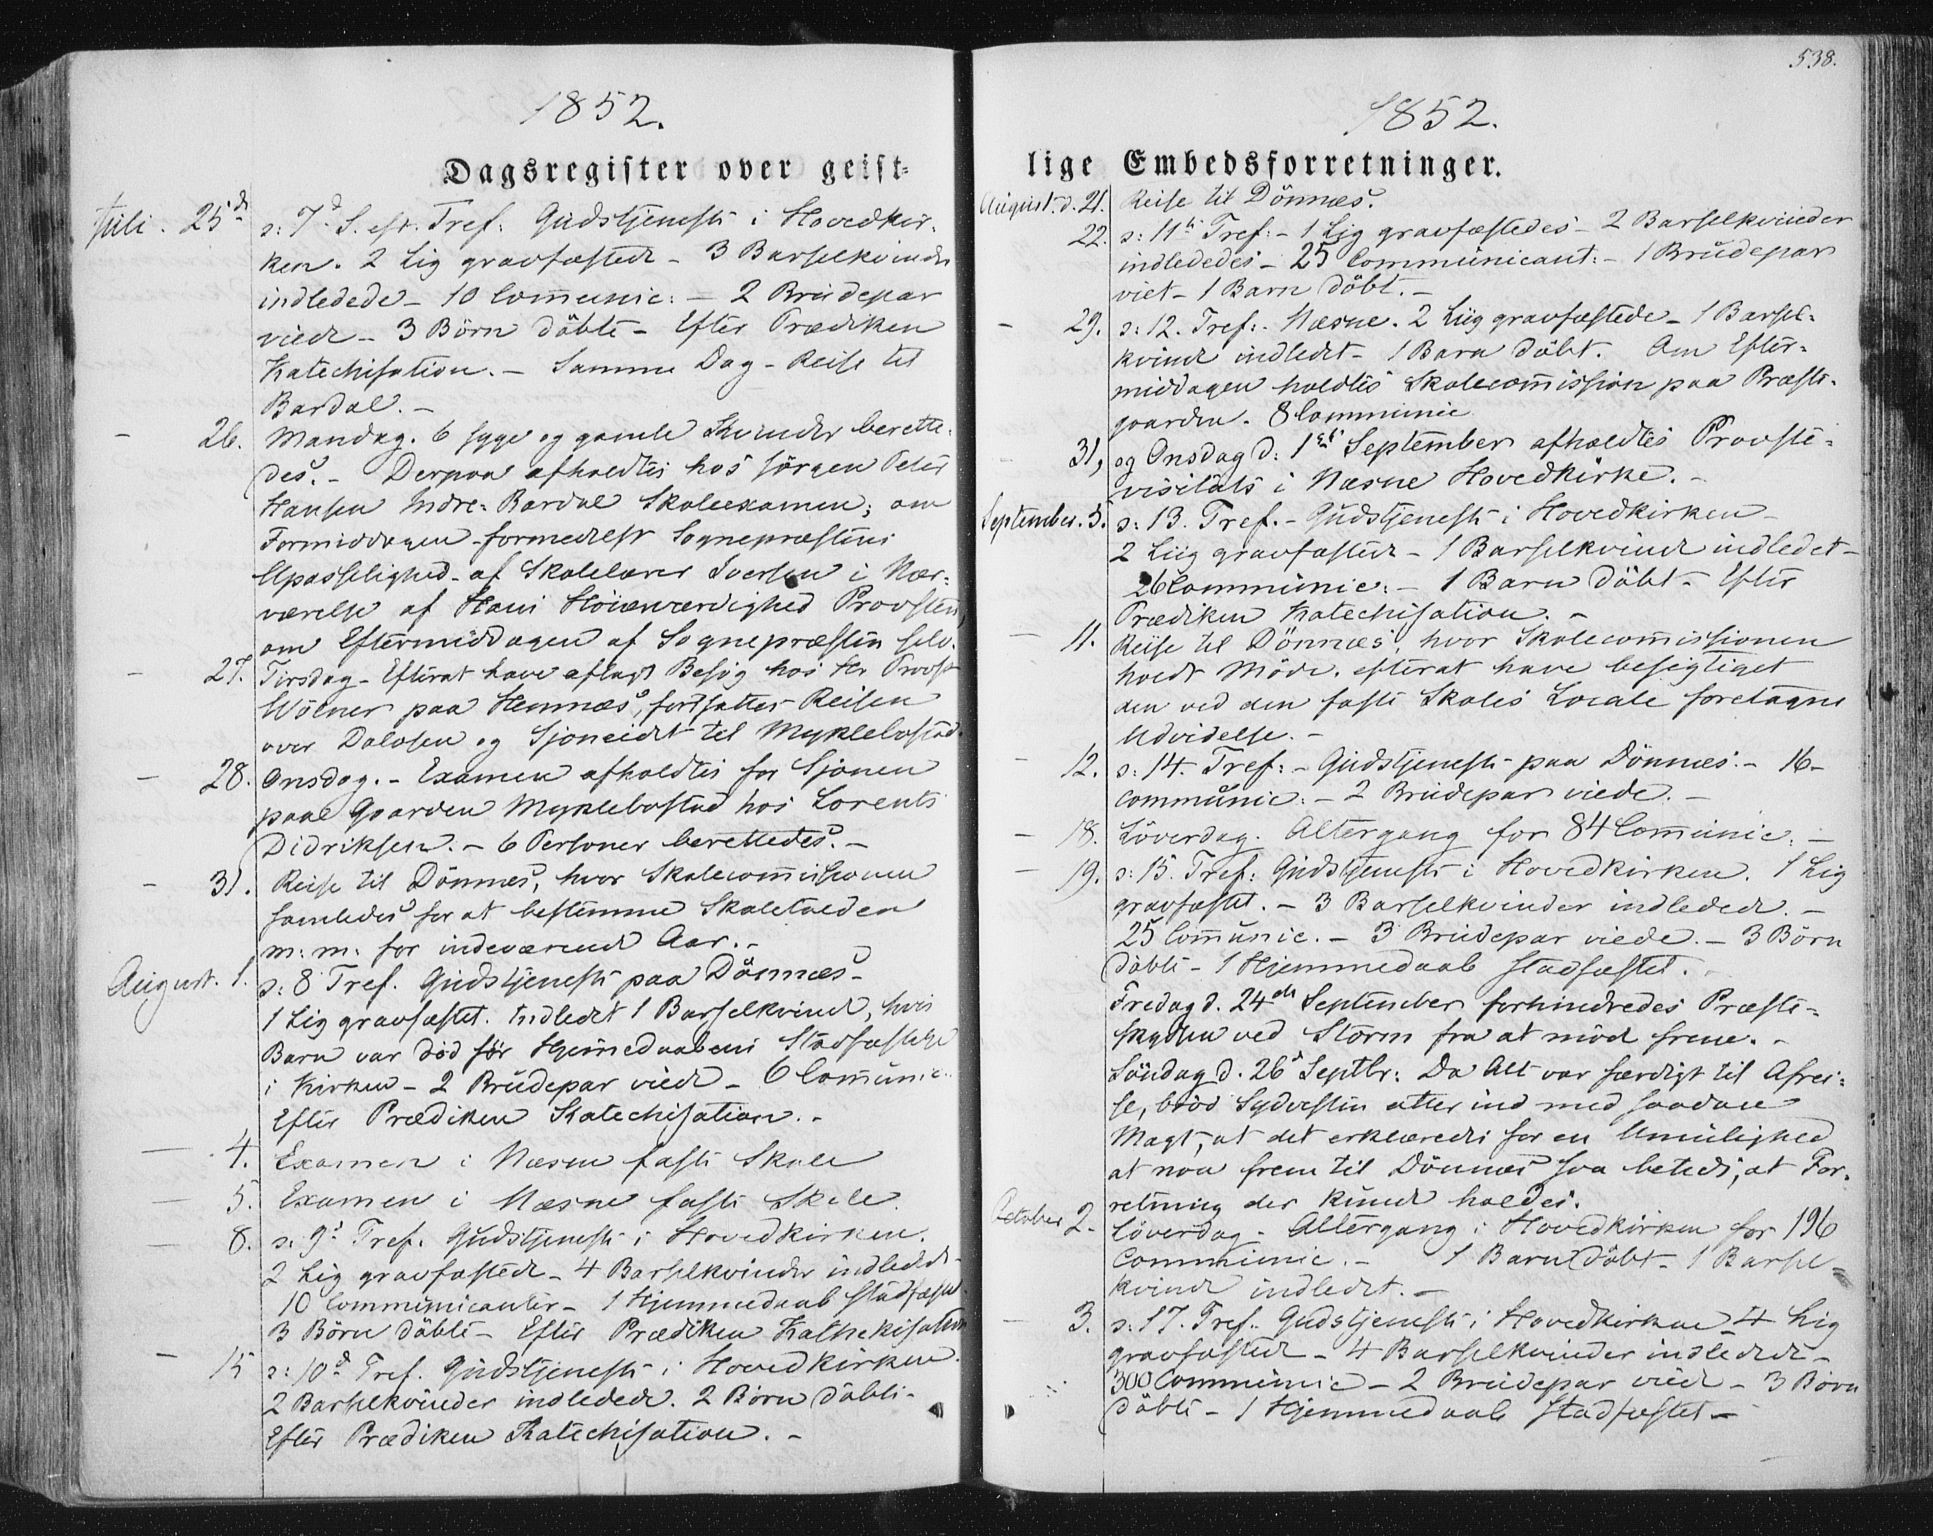 1852.
Dagsregister over geist-
Juli. 25d s: 7d S. eft. Tref: Gudstjeneste i Hovedkir-
ken. 2 Lig gravfæstede - 3 Barselkvinder
indledede - 10 Com̄unic: - 2 Brudepar
viede - 3 Börn döbte - Efter Prædiken
Katechisation. - Samme Dag - Reise til
Bardal. -
- 26. Mandag. 6 syge og gamle Kvinder berette-
des. - Derpaa afholdtes hos Jörgen Peter
Hansen Indre-Bardal Skoleexamen; om
Formiddagen formedelst Sognepræstens
Upasselighed af Skolelærer Iversen i Nær-
værelse af Hans Höiærværdighed Provsten,
om Eftermiddagen af Sognepræsten selv.
- 27. Tirsdag - Efterat have aflagt Besög hos Hr Provst
Wölner paa Hemnæs, fortsattes Reisen
over Dalosen og Sjoneidet til Myklebostad.
- 28. Onsdag. - Examen afholdtes for Sjonen
paae Gaarden Myklebostad hos Lorents
Didriksen. - 6 Personer berettedes. -
- 31. Reise til Dönnes, hvor Skolecom̄issionen
samledes for at bestemme Skoletolden
m: m: for indeværende Aar. -
August. 1. s: 8 Tref. Gudstjeneste paa Dönnæs -
1 Lig gravfæstet. Indledet 1 Barselkvinde, hvis
Barn var död för Hjem̄edaabens Stadfæstelse
i Kirken - 2 Brudepar viede - 6 Com̄unic.
Efter Prædiken Katechisation. -
- 4. Examen i Næsne faste Skole
- 5. Examen i Næsne faste Skole.
- 8. s: 9d Tref. Gudstjeneste i Hovedkirken.
2 Lig gravfæstede - 4 Barselkvinder indledede -
10 Communicanter - 1 Hjemmedaab stadfæstet
3 Börn döbte - Efter Prædiken Kathekisation
- 15 s: 10d Tref. Gudstjeneste i Hovedkirken.
2 Barselkvinder indledede. 2 Börn döbte -
Efter Prædiken Katechisation. -
538.
1852.
lige Embedsforretninger.
August. d. 21. Reise til Dönnæs.
22. s: 11te Tref: - 1 Lig gravfæstedes - 2 Barselkvinder
indlededes - 25 Communicant: - 1 Brudepar
viet - 1 Barn döbt. -
- 29. s: 12. Tref: - Næsne. 2 Liig gravfæstede - 1 Barsel-
kvinde indledet - 1 Barn döbt. Om Efter-
middagen holdtes Skolecom̄ission paa Præste-
gaarden. 8 Communic
- 31, og Onsdag d: 1ste September afholdtes Provste-
visitats i Næsne Hovedkirke. -
September. 5. s: 13. Tref. - Gudstjeneste i Hovedkirken -
2 Liig gravfæstede - 1 Barselkvinde indledet -
26 Communic: - 1 Barn döbt - Efter
Prædiken Katechisation. -
- 11. Reise til Dönnæs, hvor Skolecom̄issionen
holdt Möde, efterat have besigtiget
den ved den faste Skoles Locale foretagne
Udvidelse. -
- 12. s: 14. Tref: - Gudstjeneste paa Dönnes: - 16 -
communic: - 2 Brudepar viede. -
- 18. Löverdag. Altergang for 84 Com̄unic. -
- 19. s: 15. Tref: Gudstjeneste i Hovedkirken. 1 Lig
gravfæstet. - 3 Barselkvinder indledede. -
25 Com̄unic. - 3 Brudepar viede. - 3 Börn
döbte - 1 Hjemmedaab stadfæstet.
Fredag d. 24de September forhindredes Præste-
skydsen ved Storm fra at möde frem. -
Söndag d. 26d Septbr: Da Alt var færdigt til Afrei-
se, bröd Sydvesten atter ind med saadan
Magt, at det erklæredes for en Umulighed
at naa frem til Dönnæs saa betids, at For-
retning der kunde holdes.
October 2. Löverdag - Altergang i Hovedkirken for 196
Communic. - 1 Barn döbt - 1 Barsel-
kvinde indledet. -
- 3. s: 17. Tref. Gudstjeneste i Hovedkirken - 4 Lig
gravfæstede - 4 Barselkvinder indledede -
300 Communic - 2 Brudepar viede - 3 Börn
döbte - 1 Hjemmedaab stadfæstet -